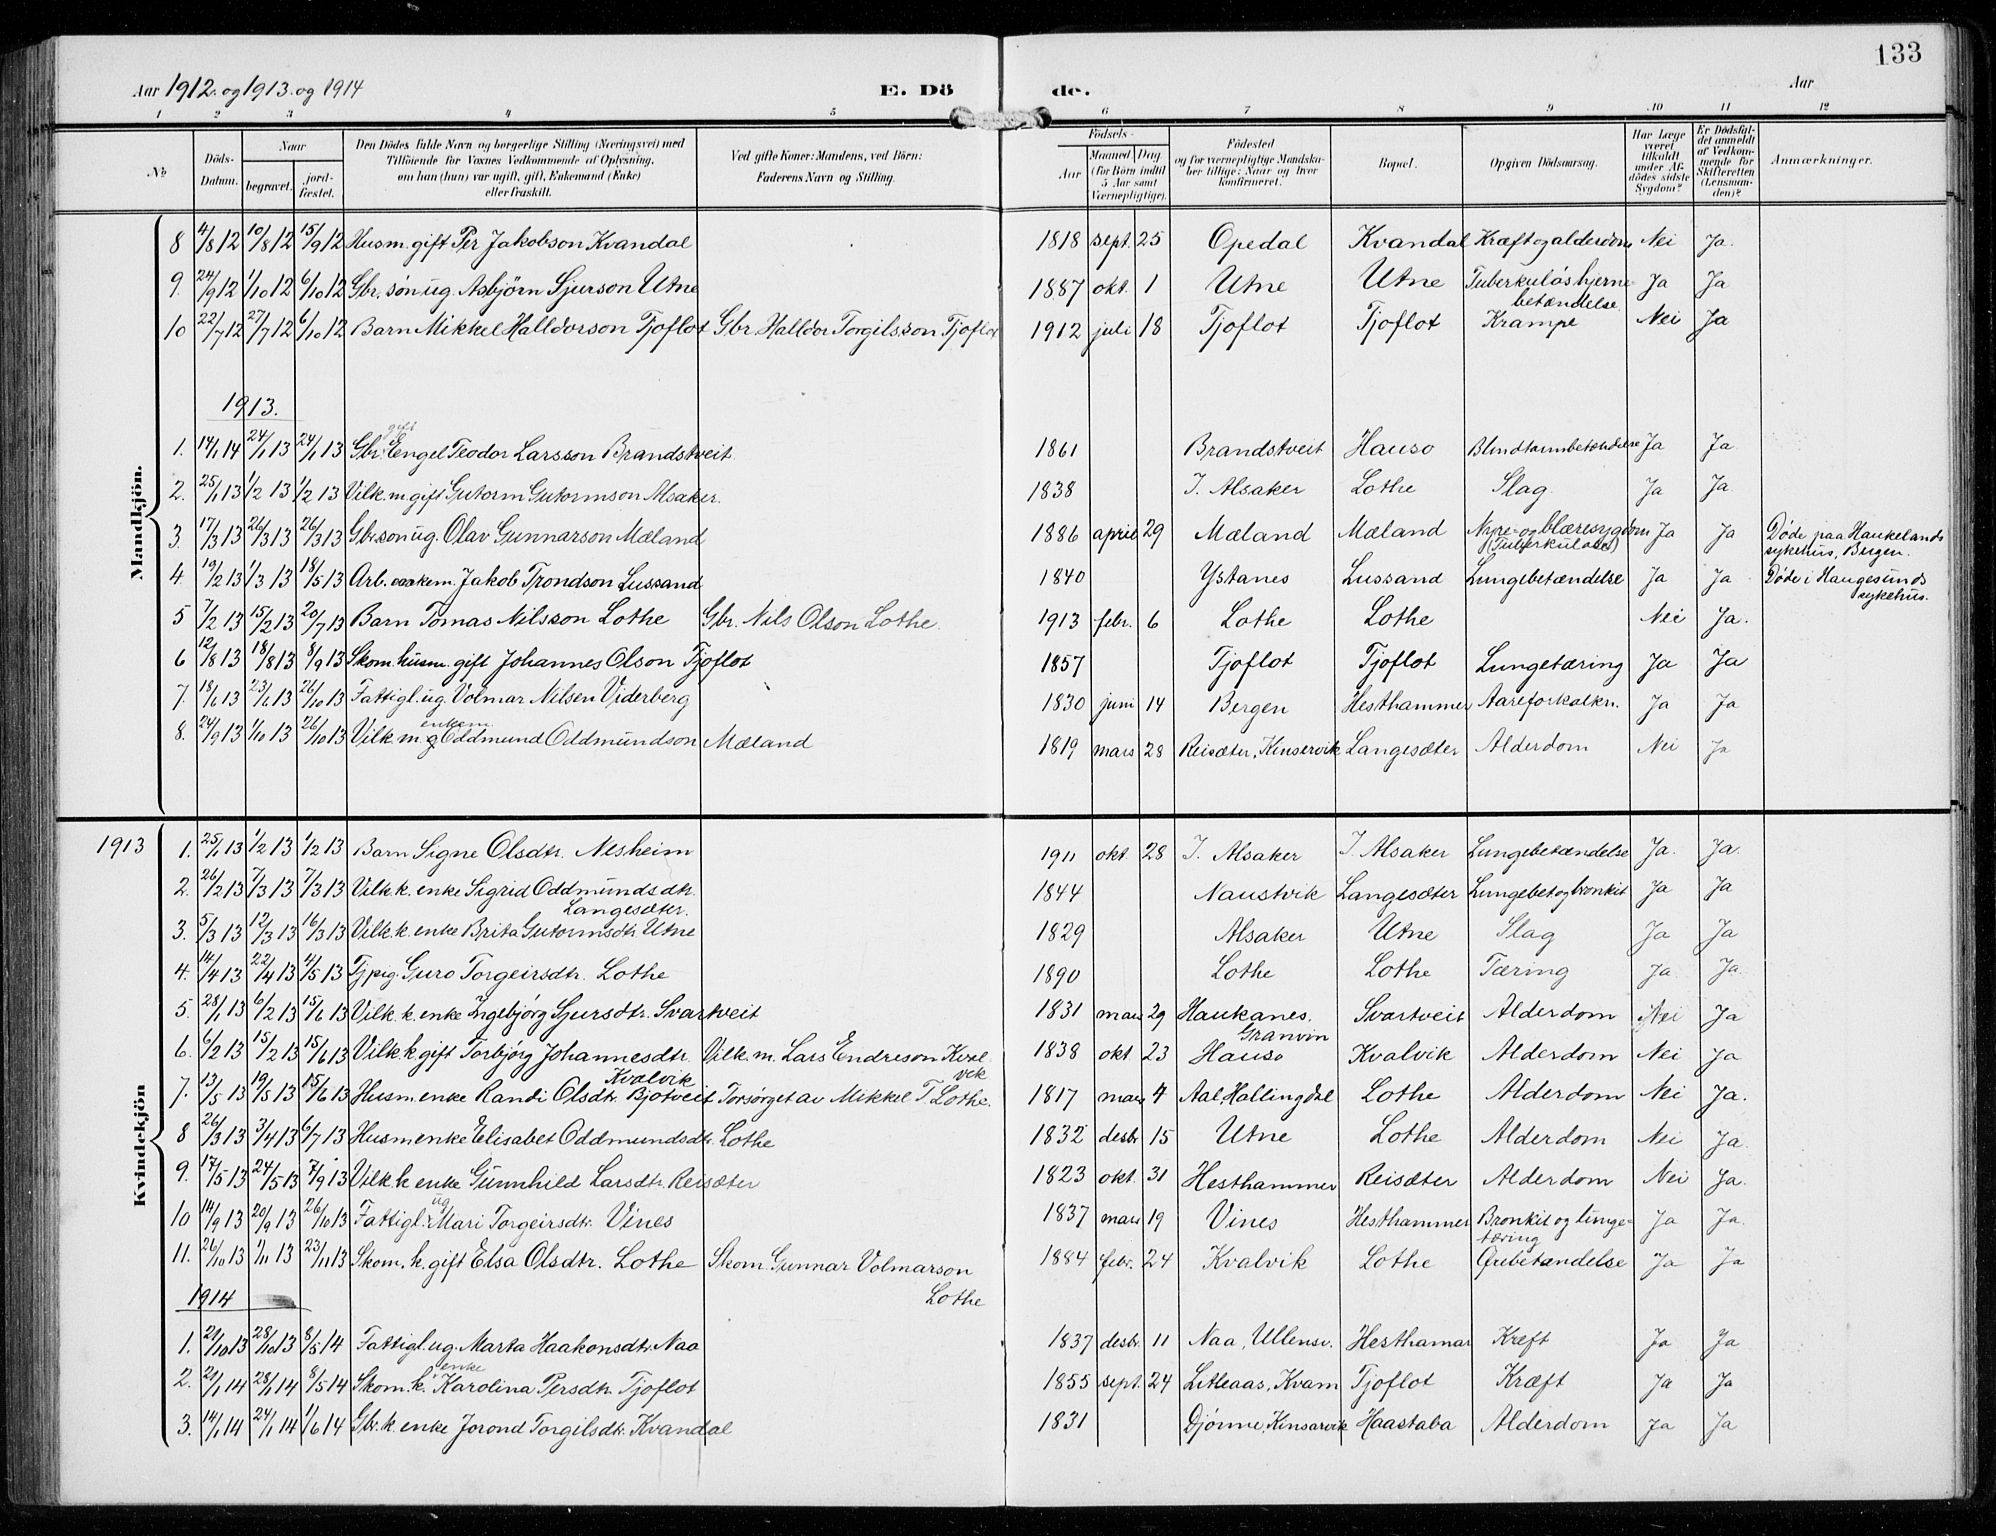 133
Aar 1912. og 1913. og 1914 E. Dö de. Aar
1 2 3 4 5 6 7 8 9 10 11 12
No Döds-Datum. Naar begravet. jord-fæstet. Den Dödes fulde Navn og borgerlige Stilling (Næringsvei) med Tilföiende for Voxnes Vedkommende af Oplysning, om han (hun) var ugift, gift, Enkemand (Enke) eller fraskilt. Ved gifte Koner: Mandens, ved Börn: Faderens Navn og Stilling. Födsels- Aar Maaned Dag (for Börn indtil 5 Aar samt Værnepligtige). Födested og for værnepligtige Mandskaber tillige: Naar og hvor konfirmeret. Bopæl. Opgiven Dödsaarsag. Har Læge været tilkaldt under Afdödes sidste Sygdom? Er Dödsfaldet anmeldt af Vedkommende for Skifteretten (Lensmanden)? Anmærkninger.
Mandkjön.
8 4/8 12 10/8 12 15/9 12 Husm. gift Per Jakobson Kvandal 1818 sept. 25 Opedal Kvandal Kræft og alderdom Nei Ja.
9. 24/9 12 1/10 12 6/10 12 Gbr. søn ug. Asbjörn Sjurson Utne 1887 okt. 1 Utne Utne Tuberkuløs hjerne Ja Ja
betændelse
10 22/7 12 27/7 12 6/10 12 Barn Mikkel Halldorson Tjoflot Gbr. Halldor Torgilsson Tjoflot 1912 juli 18 Tjoflot Tjoflot Krampe Nei Ja
1913.
gift
1. 14/1 14 24/1 13 24/1 13 Gbr. Engel Teodor Larsson Brandstveit 1861 Brandstveit Hauso Blindtarmbetændelse Ja Ja.
2. 25/1 13 1/2 13 1/2 13 Vilk. m. gift Gutorm Gutormson Alsaker. 1838 I. Alsaker Lothe Slag. Ja Ja.
3. 17/3 13 26/3 13 26/3 13 Gbr. søn ug. Olav Gunnarson Mæland 1886 april 29 Mæland Mæland Nyre- og blæresygdom Ja Ja Døde paa Haukelands
(Tuberkulose) sykehus, Bergen.
4 19/2 13 1/3 13 18/5 13 Arb. enkem. Jakob Trondson Lussand 1840 Ystanes Lussand Lungebetændelse Ja Ja Døde i Haugesunds
sykehus.
5 7/2 13 15/2 13 20/7 13 Barn Tomas Nilsson Lothe Gbr. Nils Olson Lothe. 1913 febr. 6 Lothe Lothe Nei Ja.
6 12/8 13 18/8 13 8/9 13 Skom. husm. gift Johannes Olson Tjoflot 1857 Tjoflot Tjoflot Lungetæring Ja Ja
7. 18/6 13 23/6 13 26/10 13 Fattigl. ug. Volmar Nilsen Viderberg 1830 juni 14 Bergen Hesthammer Aareforkalkn. Ja Ja
enkem.
8. 24/9 13 1/10 13 26/10 13 Vilk. m. g Oddmund Oddmundson Mæland 1819 mars 28 Reisæter, Kinservik Langesæter Alderdom Nei Ja
Kvindekjön
1913 1. 25/1 13 1/2 13 1/2 13 Barn Signe Olsdtr. Nesheim 1911 okt. 28 I. Alsaker I. Alsaker Lungebetændelse Ja. Ja.
2. 26/2 13 7/3 13 7/3 13 Vilk. k. enke Sigrid Oddmundsdtr. 1844 Naustvik Langesæter Lungebet og bronkit Ja Ja
Langesæter.
3. 5/3 13 12/3 13 16/3 13 Vilk. k. enke Brita Gutormsdtr Utne 1829 Alsaker Utne Slag Ja Ja
4. 14/4 13 22/4 13 4/5 13 Tjpig. Guro Torgeirsdtr. Lothe 1890 Lothe Lothe Tæring Ja Ja.
5. 28/1 13 6/2 13 15/6 13 Vilk. k. enke Ingebjørg Sjursdtr. Svartveit 1831 mars 29 Haukanes, Svartveit Alderdom Nei Ja
Granvin
6. 6/2 13 15/2 13 15/6 13 Vilk. k gift Torbjørg Johannesdtr. Vilk. m. Lars Endreson Kval 1838 okt. 23 Hauso Kvalvik Alderdom Nei Ja
Kvalvik vik
7. 13/5 13 19/5 13 15/6 13 Husm enke Randi Olsdtr. Bjotveit Forsørget av Mikkel T. Lothe. 1817 mars 4 Aal, Hallingdal Lothe Alderdom Nei Ja.
8 26/3 13 3/4 13 6/7 13 Husm enke Elisabet Oddmundsdtr. Lothe 1832 desbr 15 Utne Lothe Alderdom Nei Ja.
9. 17/5 13 24/5 13 7/9 13 Vilk. k enke Gunnhild Larsdtr. Reisæter 1823 okt. 31 Hesthammer Reisæter Alderdom Nei Ja.
ug
10 14/9 13 20/9 13 26/10 13 Fattigl. Mari Torgeirsdtr. Vines 1837 mars 19 Vines Hesthammer Bronkit og lunge- Ja Ja.
tæring
11. 26/10 13 1/11 13 23/11 13 Skom. k. gift Elsa Olsdtr. Lothe Skom. Gunnar Volmarson 1884 febr. 24 Kvalvik Lothe Ørebetændelse Ja Ja
Lothe
1914
1. 21/10 13 28/10 13 8/5 14 Fattigl. ug. Marta Haakonsdtr. Naa 1837 desbr. 11 Naa, Ullensv. Hesthamar Kræft Ja Ja
enke
2. 21/1 14 28/1 14 8/5 14 Skom. k. Karolina Persdtr. Tjoflot 1855 sept. 24 Litleaas, Kvam Tjoflot Kræft Ja Ja
3. 14/1 14 24/1 14 1/6 14 Gbr. k enke Jorond Torgilsdtr. Kvandal 1831 Djønne, Kinsarvik Haastaba Alderdom Ja Ja